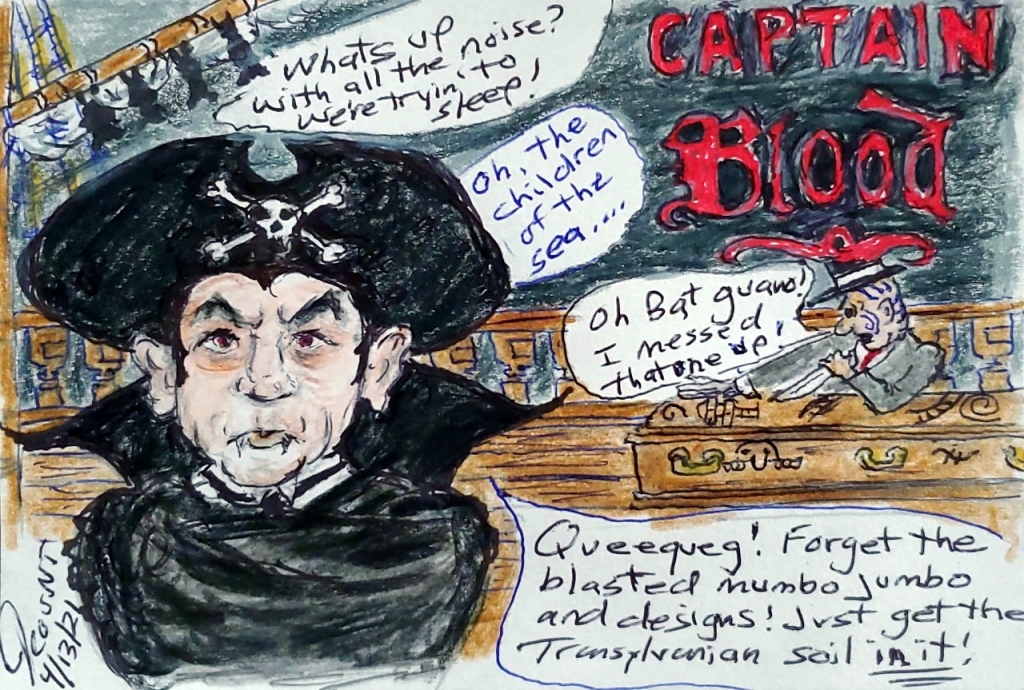 Whats up
with all the noise?
we're tryin' to
sleep!
CAPTAIN
Blood
Oh, the
children
of the
sea....
Oh Bat guano!
I messed
that one up!
Queequeg! Forget the
blasted mumbo jumbo
and designs! Just get the
Transylvanian soil in it!
4/13/21